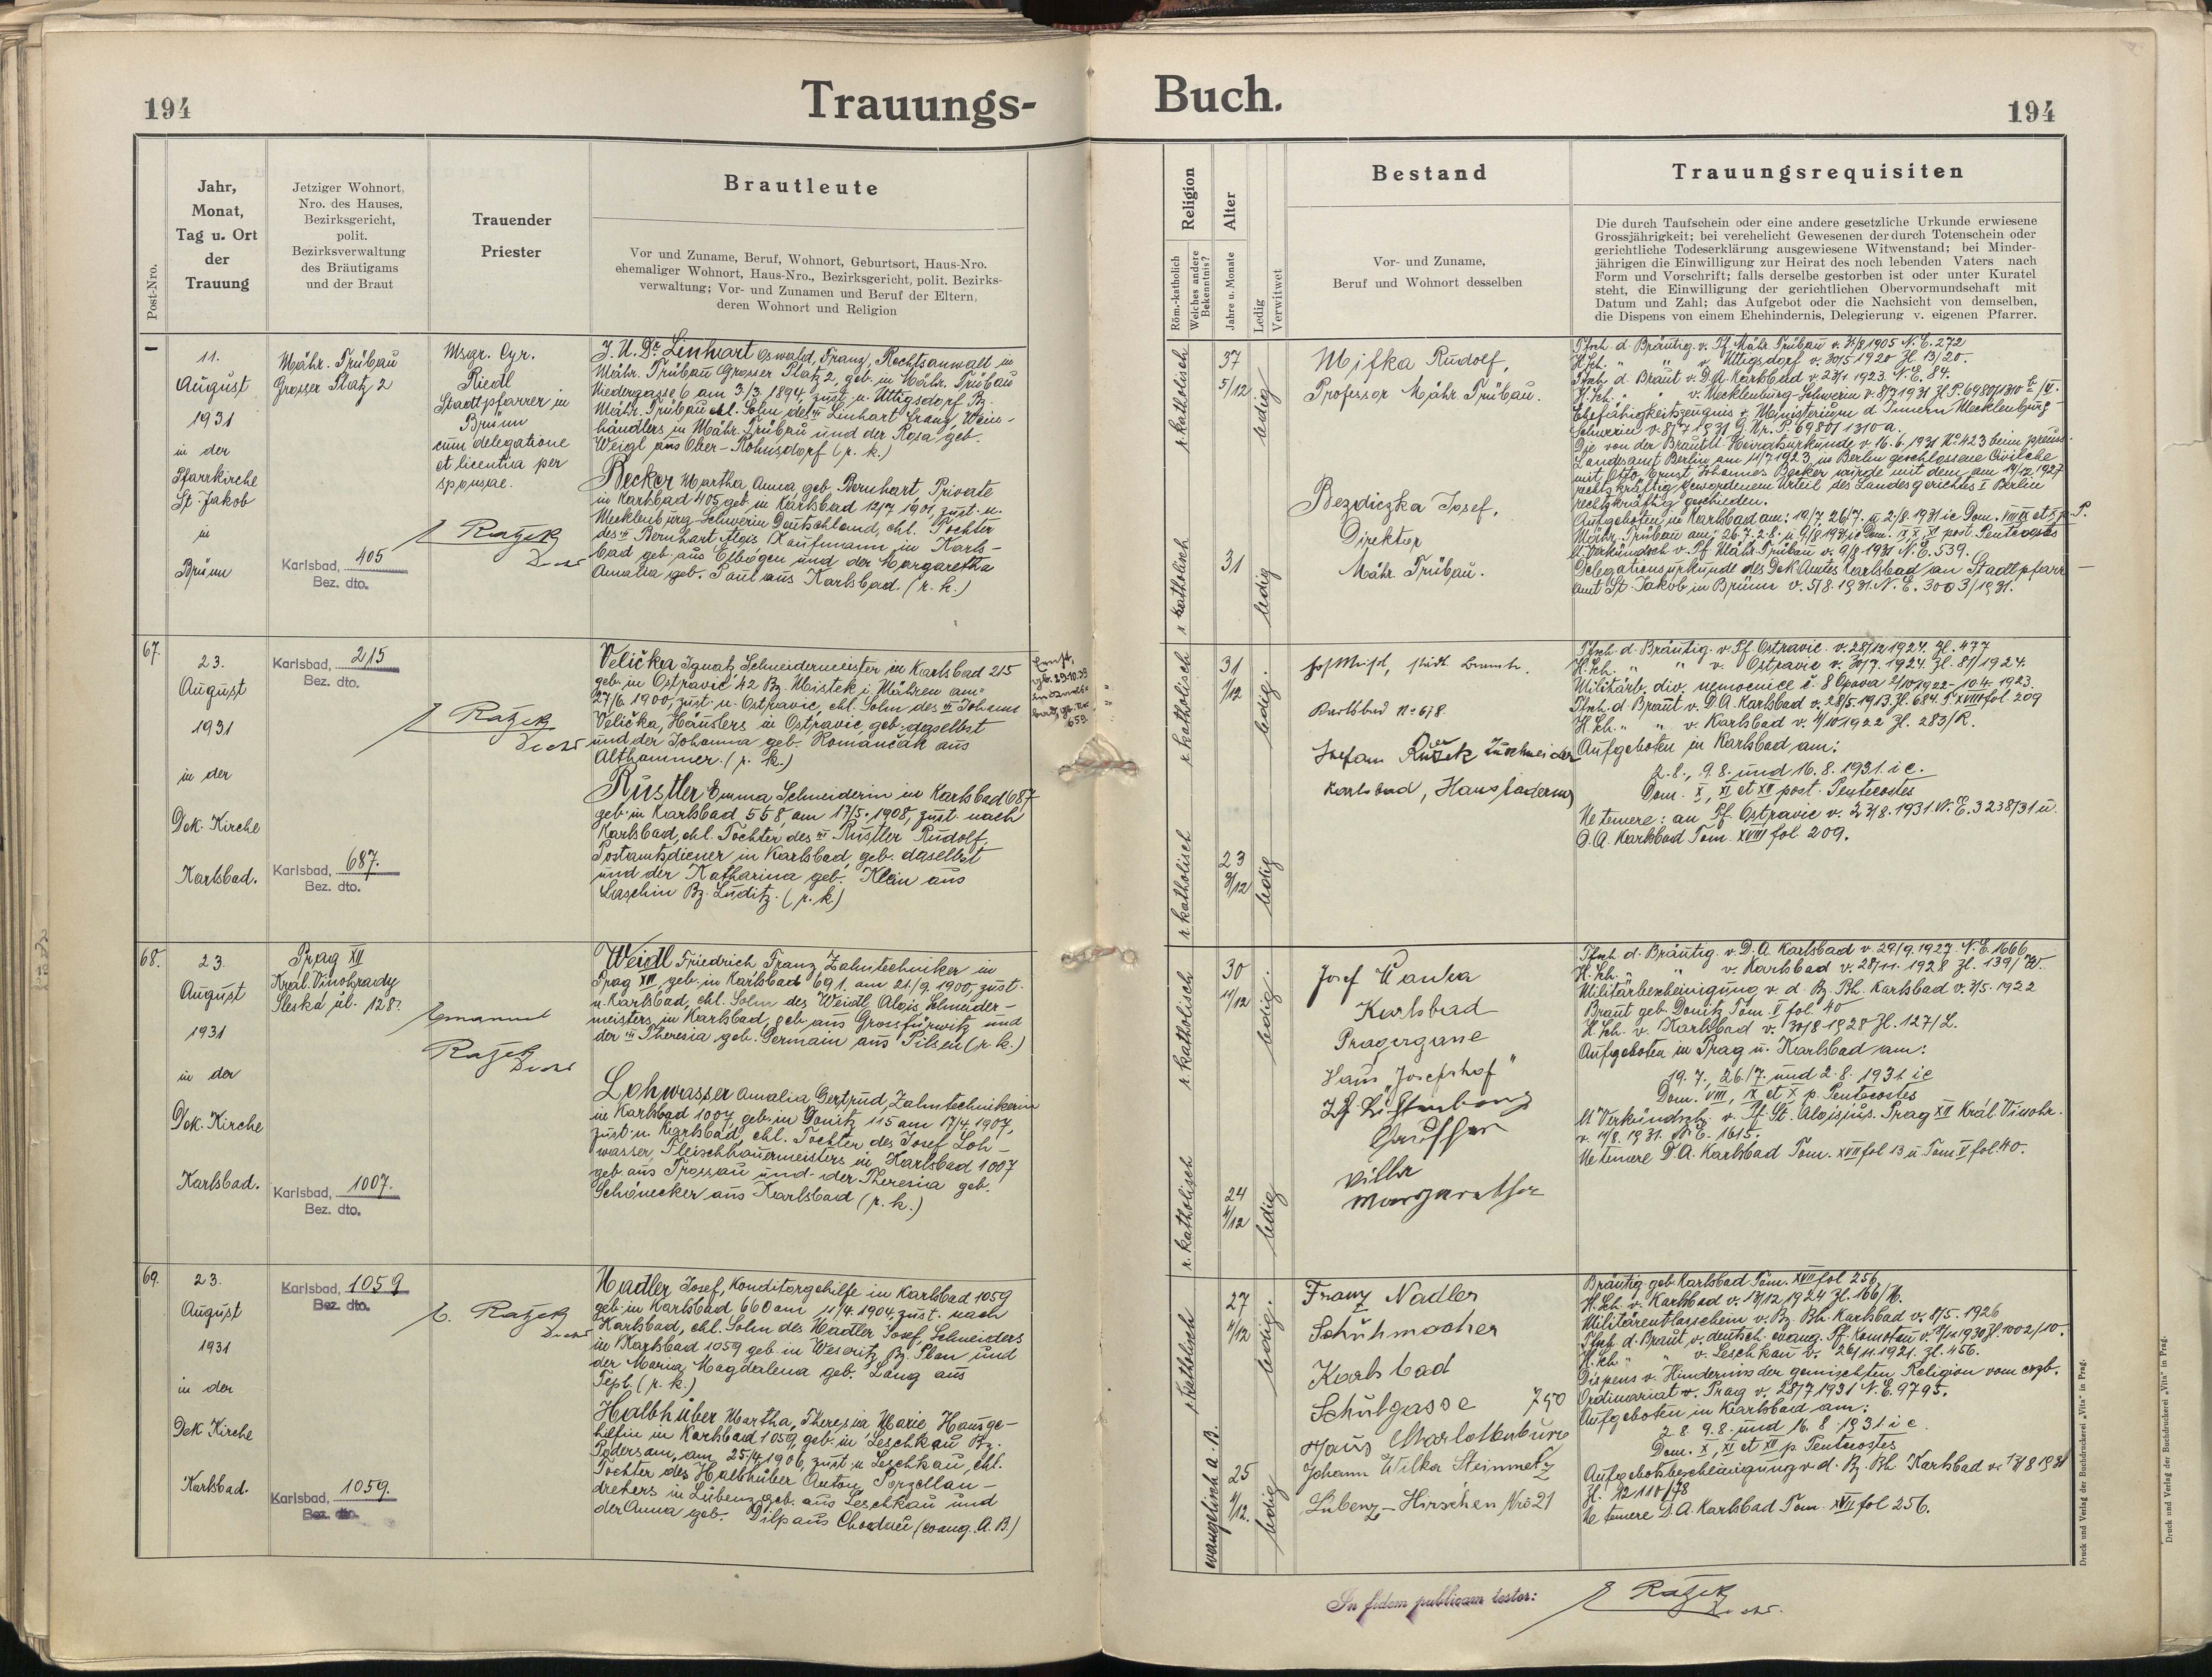 194
Trauungs-
Post-Nro.
Jahr,
Monat,
Tag u. Ort
der
Trauung
Jetziger Wohnort,
Nro. des Hauses,
Bezirksgericht,
polit.
Bezirksverwaltung
des Bräutigams
und der Braut
Trauender
Priester
Brautleute
Vor und Zuname, Beruf, Wohnort, Geburtsort, Haus-Nro.
ehemaliger Wohnort, Haus-Nro., Bezirksgericht, polit. Bezirks-
verwaltung; Vor- und Zunamen und Beruf der Eltern,
deren Wohnort und Religion
11.
August
1931
in der
Pfarrkirche
St. Jakob
in
Brünn
Mähr. Trübau
Grosser Platz 2
Karlsbad, 405
Bez. dto.
Msgr. Cyr.
Riedl
Stadtpfarrer in
Brünn
cum delegatione
et licentia per
sponsae.
J.U.Dr. Linhart Oswald, Franz, Rechtsanwalt in
Mähr. Trübau Grosser Platz 2, geb. in Mähr. Trübau
Niedergasse 6 am 3/3. 1894, zust. n. Uttigsdorf Bz.
Mähr. Trübau ehl. Sohn des Linhart Franz, Wein-
händlers in Mähr. Trübau und der Rosa geb.
Weigl aus Ober-Rohnsdorf (r. k.)
Becker Martha Anna geb. Bernhart, Private
in Karlsbad 405 geb. in Karlsbad 12/7 1901, zust. n.
Mecklenburg-Schwerin Deutschland, ehl. Tochter
des Bernhart Alois Kaufmann in Karls-
bad geb. aus Elbogen und der Margaretha
Amalia geb. Paul aus Karlsbad. (r. k.)
67.
23.
August
1931
in der
Dek. Kirche
Karlsbad.
Karlsbad, 215
Bez. dto.
Karlsbad, 687.
Bez. dto.
Velička Ignatz, Schneidermeister in Karlsbad 215
geb. in Ostravic 42 Bz. Mistek i. Mähren am
27/6. 1900, zust. n. Ostravic, ehl. Sohn des Johann
Velička, Häuslers in Ostravic, geb. daselbst
und der Johanna geb. Romančák aus
Althammer. (r. k.)
Rustler Emma Schneiderin in Karlsbad 687
geb. in Karlsbad 558, am 17/5. 1908, zust. nach
Karlsbad, ehl. Tochter des Rustler Rudolf,
Postamtsdiener in Karlsbad, geb. daselbst
und der Katharina geb. Klein aus
Laschin Bz. Luditz. (r. k.)
68.
23.
August
1931
in der
Dek. Kirche
Karlsbad.
Prag XII
Král. Vinohrady
Sleská úl. 128.
Karlsbad, 1007.
Bez. dto.
Emanuel
Weidl Friedrich, Franz, Zahntechniker in
Prag XII, geb. in Karlsbad 691. am 21/9. 1900, zust.
n. Karlsbad, ehl. Sohn des Weidl Alois, Schneider-
meisters in Karlsbad, geb. aus Grossfürwitz und
der Theresia geb. Germain aus Pilsen (r. k.)
Lohwasser Amalia Gertrud, Zahntechnikerin
in Karlsbad 1007, geb. in Donitz 115 am 17/4. 1907,
zust. n. Karlsbad, ehl. Tochter des Josef Loh-
wasser, Fleischhauermeisters in Karlsbad 1007
geb. aus Trossau und der Theresia geb.
Schönecker aus Karlsbad (r. k.)
69.
23.
August
1931
in der
Dek Kirche
Karlsbad.
Karlsbad, 1059
Bez. dto.
Karlsbad, 1059.
Bez. dto.
Nadler Josef, Konditorgehilfe in Karlsbad 1059
geb. in Karlsbad 660 am 11/4. 1904, zust. nach
Karlsbad, ehl. Sohn des Nadler Josef, Schneiders
in Karlsbad 1059 geb. in Weseritz Bz. Plan und
der Maria, Magdalena geb. Lang aus
Tepl. (r. k.)
Halbhuber Martha, Theresia Marie, Hausge-
hilfin in Karlsbad 1059, geb. in Leschkau Bz.
Podersam, am 25/4 1906, zust. n. Leschkau, ehl.
Tochter des Halbhuber Anton, Porzellan-
drehers in Lubenz, geb. aus Leschkau und
der Anna geb. Dilp aus Chodau (evang. A. B.)
Buch.
194
Religion
Röm.-katholisch
Welches andere
Bekenntnis?
Alter
Jahre u. Monate
Ledig
Verwitwet
Bestand
Vor- und Zuname,
Beruf und Wohnort desselben
Trauungsrequisiten
Die durch Taufschein oder eine andere gesetzliche Urkunde erwiesene
Grossjährigkeit; bei verehelicht Gewesenen der durch Totenschein oder
gerichtliche Todeserklärung ausgewiesene Witwenstand; bei Minder-
jährigen die Einwilligung zur Heirat des noch lebenden Vaters nach
Form und Vorschrift; falls derselbe gestorben ist oder unter Kuratel
steht, die Einwilligung der gerichtlichen Obervormundschaft mit
Datum und Zahl; das Aufgebot oder die Nachsicht von demselben,
die Dispens von einem Ehehindernis, Delegierung v. eigenen Pfarrer.
r. katholisch
37
5/12
ledig
r. katholisch
31
ledig
Mifka Rudolf,
Professor Mähr. Trübau.
Bezdiczka Josef,
Direktor
Mähr. Trübau.
Tfsch. d. Bräutig. v. Pf. Mähr. Trübau v. 1905 N.E. 272
H.Sch. " " v. Uttigsdorf v. 30/5 1920 Zl. 13/20.
Tfsch. d. Braut v. D.A. Karlsbad v. 23/1. 1923. N.E. 84.
H.Sch. " v. Mecklenburg-Schwerin v. 8/7 1931
Ehefähigkeitszeugnis v. Ministerium d. Innern Mecklenburg-
Schwerin v. 8/7 1931 G. Nr. P. 69801 1310 a.
Die von der Brautll. Heiratsurkunde v. 16. 6. 1931 No 423 beim preuss.
Landesamt Berlin am 11/7 1923 in Berlin geschlossene Civilehe
mit Otto Ernst Johannes Becker wurde mit dem am 14/12 1927
rechtskräftig gewordenem Urteil des Landesgerichtes I Berlin
rechtkräftig geschieden.
Aufgeboten in Karlsbad am: 19/7, 26/7. u. 2/8. 1931 ie Dom. VIII IX et X p. P.
Mähr. Trübau am: 26.7. 2.8. u. 9/8 1931 ie Dom. IX, X, XI post. Pentecostes
lt. Verkündsch. v. Pf. Mähr. Trübau v. 9/8 1931 N.E. 539.
Delegationsurkunde des Dek. Amtes Karlsbad an Stadtpfarr-
amt St. Jakob in Brünn v. 5/8. 1931. N.E. 3003/1931.
r. katholisch
31
1/12
ledig.
r. katholisch
23
3/12
ledig
Karlsbad No 678.
Karlsbad, Haus
Tfsch. d. Bräutig. v. Pf. Ostravic. v. 28/12 1924. Zl. 477
H.Sch. " " v. Ostravic v. 30/7. 1924. Zl. 81/1924.
Militärb. div. nemocnice č. 8 Opava 2/10 1922 - 10.4. 1923.
Tfsch. d. Braut v. D.A. Karlsbad v. 28/5. 1913. Zl. 684. T. XVIII fol 209
H.Sch. " " v. Karlsbad v. 4/10 1922 Zl. 283/R.
Aufgeboten in Karlsbad am:
2.8., 9.8. und 16.8. 1931. ie.
Dom. X, XI et XII post. Pentecostes
Ne temere: an Pf. Ostravic v. 23/8. 1931. N.E. 3238/31 u.
D.A. Karlsbad Tom. XVIII fol 209.
r. katholisch
30
11/12
ledig.
r. katholisch
24
4/12
ledig
Josef
Karlsbad
Pragergasse
Haus "Josefshof"
Villa
Margaretha
Tfsch. d. Bräutig. v. D.A. Karlsbad v. 29/9. 1927. N.E. 1666
H.Sch. " " v. Karlsbad v. 28/11. 1928 Zl. 139/W.
Militärbescheinigung v. d. Bz. Bh. Karlsbad v. 3/5. 1922
Braut geb. Donitz Tom. V fol. 40
H.Sch. v. Karlsbad v. 30/8 1928 Zl. 127/L.
Aufgeboten in Prag u. Karlsbad am:
19. 7., 26./7. und 2. 8. 1931. ie
Dom. VIII, IX et X p. Pentecostes
lt. Verkündsch. v. Pf. St. Aloisius. Prag XII Král. Vinohr.
v. 1931. N.E. 1615.
Ne temere D.A. Karlsbad Tom. XVII fol 13 u. Tom. V fol. 40.
r. katholisch
27
4/12
ledig.
evangelisch a. B.
25
4/12.
ledig
Franz Nadler
Schuhmacher
Karlsbad
Schulgasse 750
Haus
Johann Wilka Steinmetz
Lubenz-Hirschen Nro 21
Bräutig. geb. Karlsbad Tom. XVII fol 256.
H.Sch. v. Karlsbad v. 13/12 1924 Zl. 166/N.
Militärentlasschein v. Bz. Bh. Karlsbad v. 8/5. 1926
Tfsch. d. Braut v. deutsch. evang. Pf. Komotau v. 1930 Zl. 1002/10.
H.Sch. " v. Leschkau v. 26/11. 1921. Zl. 456.
Dispens v. Hindernis der gemischten Religion vom erzb.
Ordinariat v. Prag v. 28/7 1931 N.E. 9795.
Aufgeboten in Karlsbad am:
2. 8. 9. 8. und 16. 8. 1931. ie
Dom. X, XI et XII p. Pentecostes
Aufgebotsbescheinigung v. d. Bz. Bh. Karlsbad v. 13/8 1931
Zl. 12110/78
Ne temere D.A. Karlsbad Tom. XVII fol 256.
In fidem publicam testor:
Druck und Verlag der Buchdruckerei „Vita" in Prag.
Druck und Verlag der Buchdruckerei „Vita" in Prag.